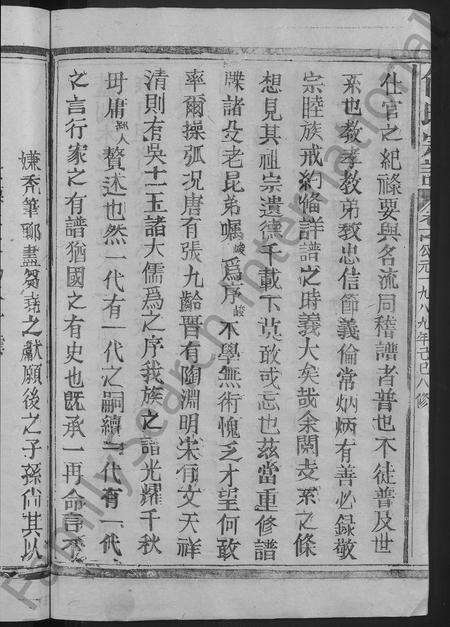 仕官之紀祿要與名流同稽譜者普也不徒普及世
系也教孝教弟教忠信節義倫常炳炳有善必録敬
宗睦族戒約條詳譜之時義大矣哉余閱支系之條
想見其祖宗遺德千載下莫敢或忘也茲當重修譜
牒諸父老昆弟囑峻爲序峻不學無術愧乏才望何敢
率爾操弧况唐有張九齡晋有陶淵明宋有文天祥
清則有吳十一玉諸大儒爲之序我族之譜光耀千秋
毋庸鄙人贅述也然一代有一代之嗣續一代有一代
之言行家之有譜猶國之有史也既承一再命言不
嫌秃筆聊盡芻蕘之獻願後之子孫尙其以
氏宗譜
公元一九八九年己巳八修
FamilySearch International